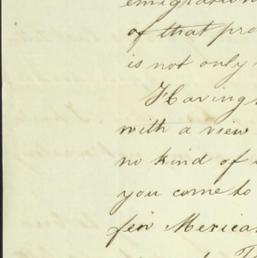 emigration
of that pro
is not only
Having
with a view
no kind of
you come to
few Mexica